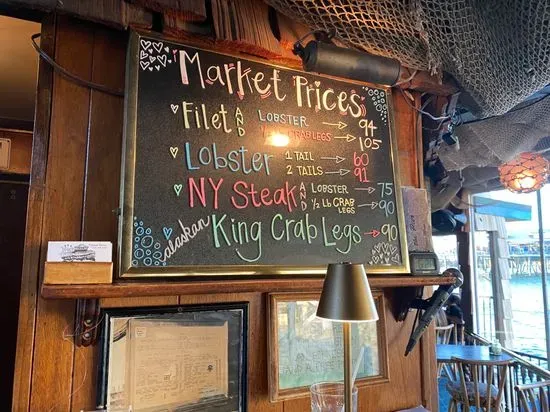 Market Prices
Filet AND LOBSTER → 94
½ LB CRAB LEGS → 105
Lobster 1 TAIL → 60
2 TAILS → 91
NY Steak AND LOBSTER → 75
½ LB CRAB LEGS → 90
alaskan King Crab Legs → 90